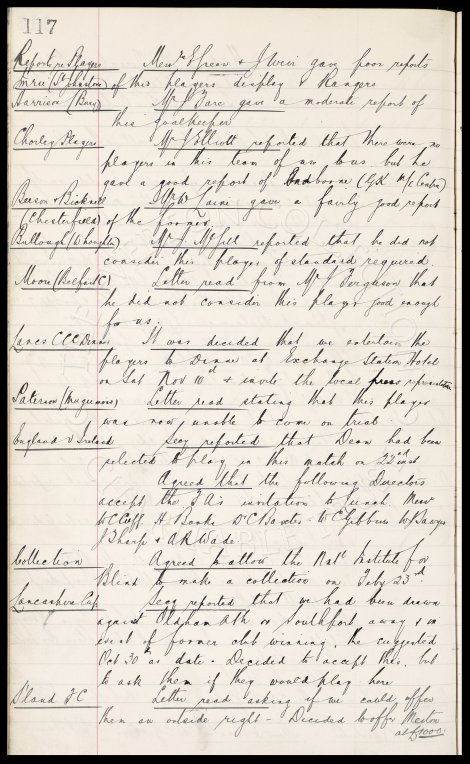 117
Report re Players Messrs E Green & J Weir gave poor reports
(St Johnstone) of this players display v Rangers
Harrison (Bury) Mr J Fare gave a moderate report of
this goalkeeper
Chorley Players Mr J Elliott reported that there were no
players in this team of use to us but he
gave a good report of Bradborne (GK M/c Central)
Beeson & Bicknell gave a fairly good report
(Chesterfield) of the former.
Bullough (W Houghton) Mr J McGill reported that he did not
consider this player of standard required
Moore (Belfast C) Letter read from Mr J Ferguson that
he did not consider this player good enough
for us.
Lancs CCC Dinner It was decided that we entertain the
players to Dinner at Exchange Station Hotel
on Sat Nov 10th & invite the local press representatives
Paterson (Maguiresons) Letter read stating that this player
was now unable to come on trial.
England v Ireland Secy reported that Dean had been
selected to play in this match on 22nd inst
Agreed that the following Directors
accept the FA's invitation to lunch Messrs
W C Cuff H Banks Dr C Baxter W C Gibbins W J Sawyer
J Sharp & A R Wade.
Collection Agreed to allow the Natl Institute for
Blind to make a collection on Feby 23rd
Lancashire Cup Secy reported that we had been drawn
against Oldham Ath or Southport away & in
event of former club winning, he suggested
Oct 30th as date. Decided to accept this, but
to ask them if they would play here
S'land FC Letter read asking if we could offer
them an outside right - Decided to offer Meston
at £1000.